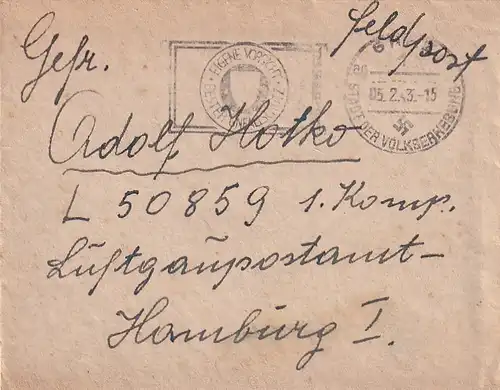 Feldpost
Gefr.
Adolf Hotko
L 50859 1. Komp.
Luftgaupostamt-
Hamburg I.
EIGENE VORSICHT
05.2.43.-15
STADT DER VOLKSERHEBUNG